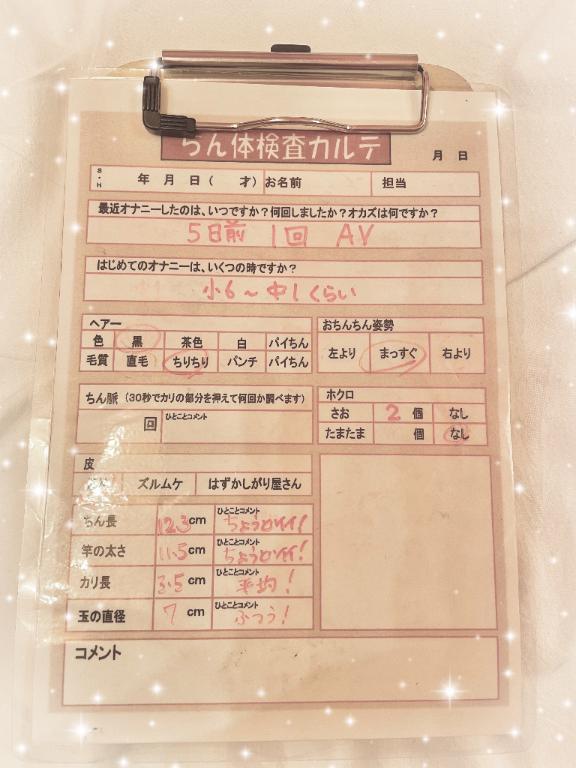 ちん体検査カルテ
月 日
S・H 年 月 日( 才) お名前 担当
最近オナニーしたのは、いつですか?何回しましたか?オカズは何ですか?
5日前 1回 AV
はじめてのオナニーは、いくつの時ですか?
小6〜中1くらい
ヘアー
色 黒 茶色 白 パイちん
毛質 直毛 ちりちり パンチ パイちん
おちんちん姿勢
左より まっすぐ 右より
ちん脈 (30秒でカリの部分を押えて何回か調べます)
回 ひとことコメント
ホクロ
さお 2 個 なし
たまたま 個 なし
皮
ズルムケ はずかしがり屋さん
ちん長 12.3cm ひとことコメント ちょうロイイ!
竿の太さ 11.5cm ひとことコメント ちょうロイイ!
カリ長 3.5cm ひとことコメント 平均!
玉の直径 7 cm ひとことコメント ふつう!
コメント